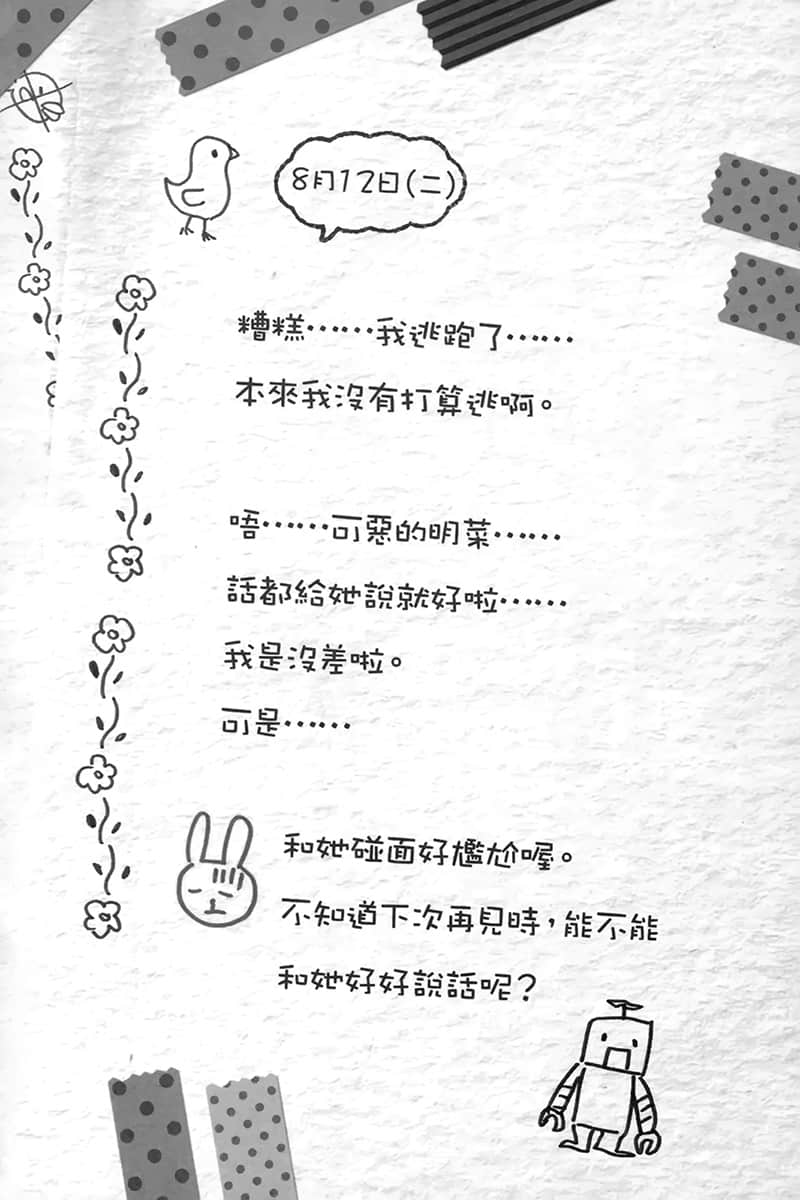 8月12日(二)
糟糕……我逃跑了……
本來我沒有打算逃啊。
唔……可惡的明菜……
話都給她說就好啦……
我是沒差啦。
可是……
和她碰面好尷尬喔。
不知道下次再見時，能不能
和她好好說話呢？